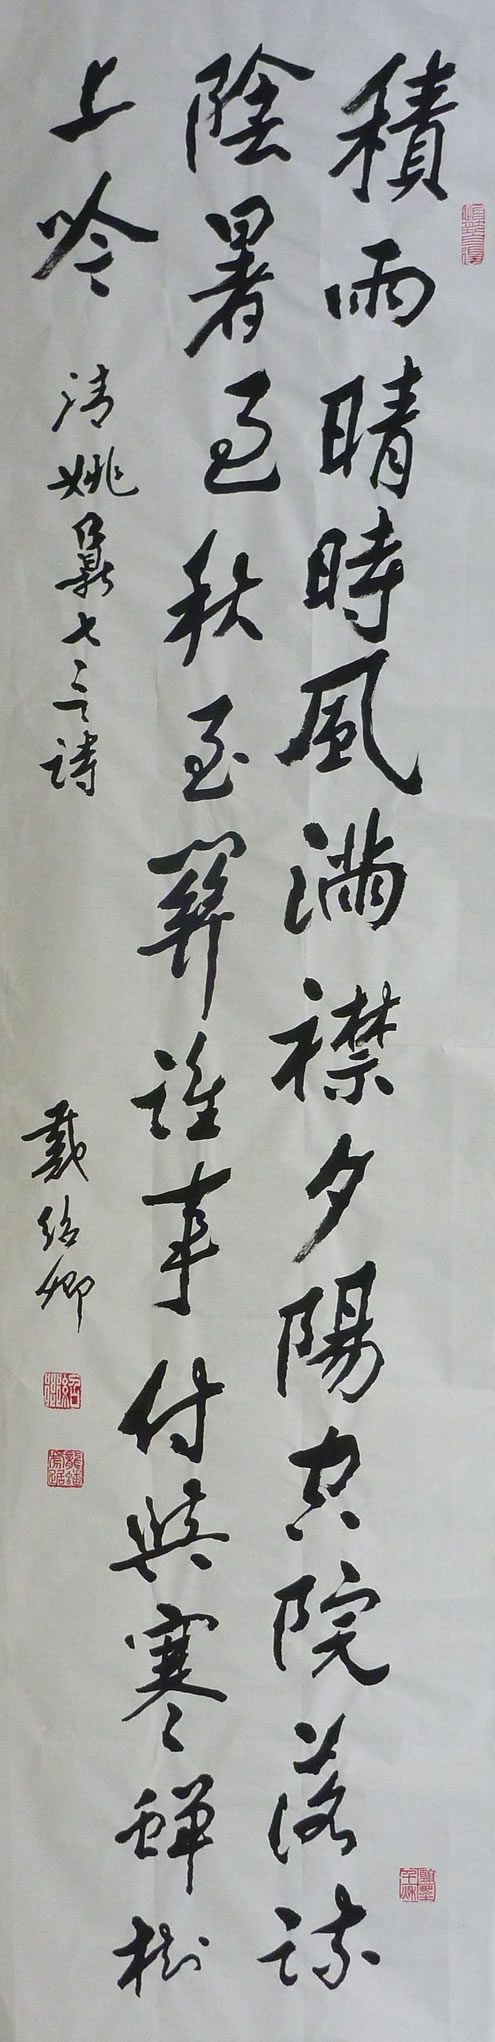 積雨晴時風滿襟夕陽空院落疏
陰暑過秋至關誰事付與寒蟬樹
上吟
清姚鼐七言詩
戴紹卿